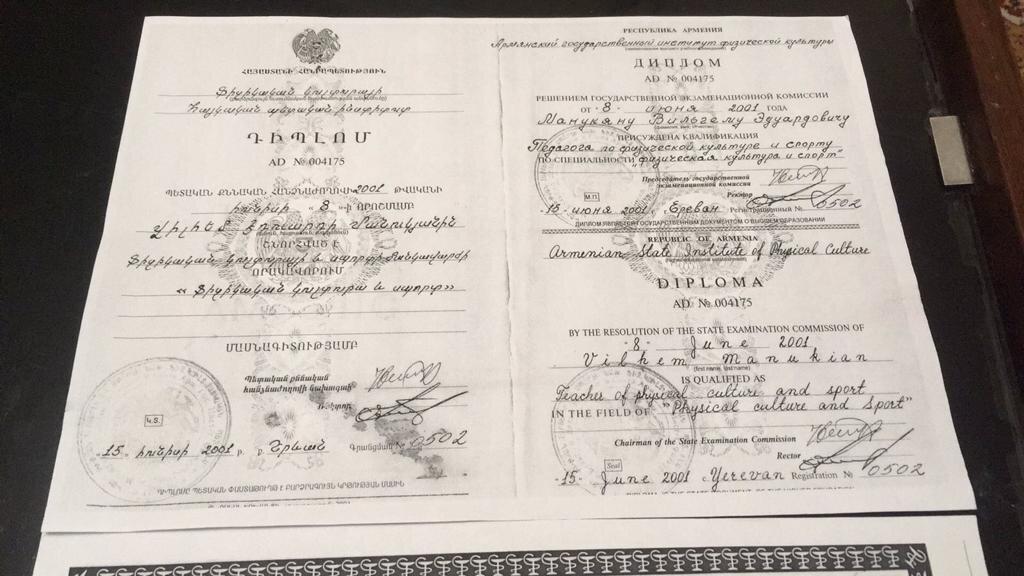 ՀԱՅԱՍՏԱՆԻ ՀԱՆՐԱՊԵՏՈՒԹՅՈՒՆ
Ֆիզիկական կուլտուրայի
Հայկական պետական ինստիտուտ
ԴԻՊԼՈՄ
AD № 004175
ՊԵՏԱԿԱՆ ՔՆՆԱԿԱՆ ՀԱՆՁՆԱԺՈՂՈՎԻ 2001 ԹՎԱԿԱՆԻ
հունիսի « 8 »-ի ՈՐՈՇՄԱՄԲ
Մանուկյանին
ՇՆՈՐՀՎԱԾ Է
Ֆիզիկական կուլտուրայի և սպորտի մանկավարժի
ՈՐԱԿԱՎՈՐՈՒՄ
« Ֆիզիկական կուլտուրա և սպորտ»
ՄԱՍՆԱԳԻՏՈՒԹՅԱՄԲ
Պետական քննական
հանձնաժողովի նախագահ
Ռեկտոր
Կ.Տ.
15 հունիսի 2001 թ. ք. Երևան Գրանցման № 0502
ԴԻՊԼՈՄԸ ՊԵՏԱԿԱՆ ՓԱՍՏԱԹՈՒՂԹ Է ԲԱՐՁՐԱԳՈՒՅՆ ԿՐԹՈՒԹՅԱՆ ՄԱՍԻՆ
РЕСПУБЛИКА АРМЕНИЯ
Армянский государственный институт физической культуры
ДИПЛОМ
AD № 004175
РЕШЕНИЕМ ГОСУДАРСТВЕННОЙ ЭКЗАМЕНАЦИОННОЙ КОМИССИИ
ОТ « 8 » июня 2001 ГОДА
Манукяну Вильгему Эдуардовичу
ПРИСУЖДЕНА КВАЛИФИКАЦИЯ
Педагога по физической культуре и спорту
ПО СПЕЦИАЛЬНОСТИ "физическая культура и спорт"
Председатель государственной
экзаменационной комиссии
Ректор
М.П.
15 июня 2001 г. Ереван Регистрационный № 0502
ДИПЛОМ ЯВЛЯЕТСЯ ГОСУДАРСТВЕННЫМ ДОКУМЕНТОМ О ВЫСШЕМ ОБРАЗОВАНИИ
REPUBLIC OF ARMENIA
Armenian State Institute of Physical Culture
DIPLOMA
AD № 004175
BY THE RESOLUTION OF THE STATE EXAMINATION COMMISSION OF
" 8 " June 2001
Vilhem Manukian
(first name, last name)
IS QUALIFIED AS
Teacher of physical culture and sport
IN THE FIELD OF "Physical culture and Sport"
Chairman of the State Examination Commission
Rector
Seal
"15" June 2001 Yerevan Registration № 0502